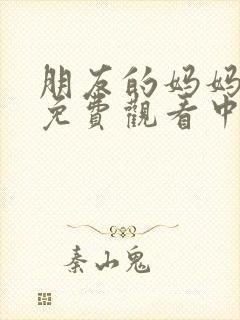 朋友的妈妈
免費觀看中
秦山鬼